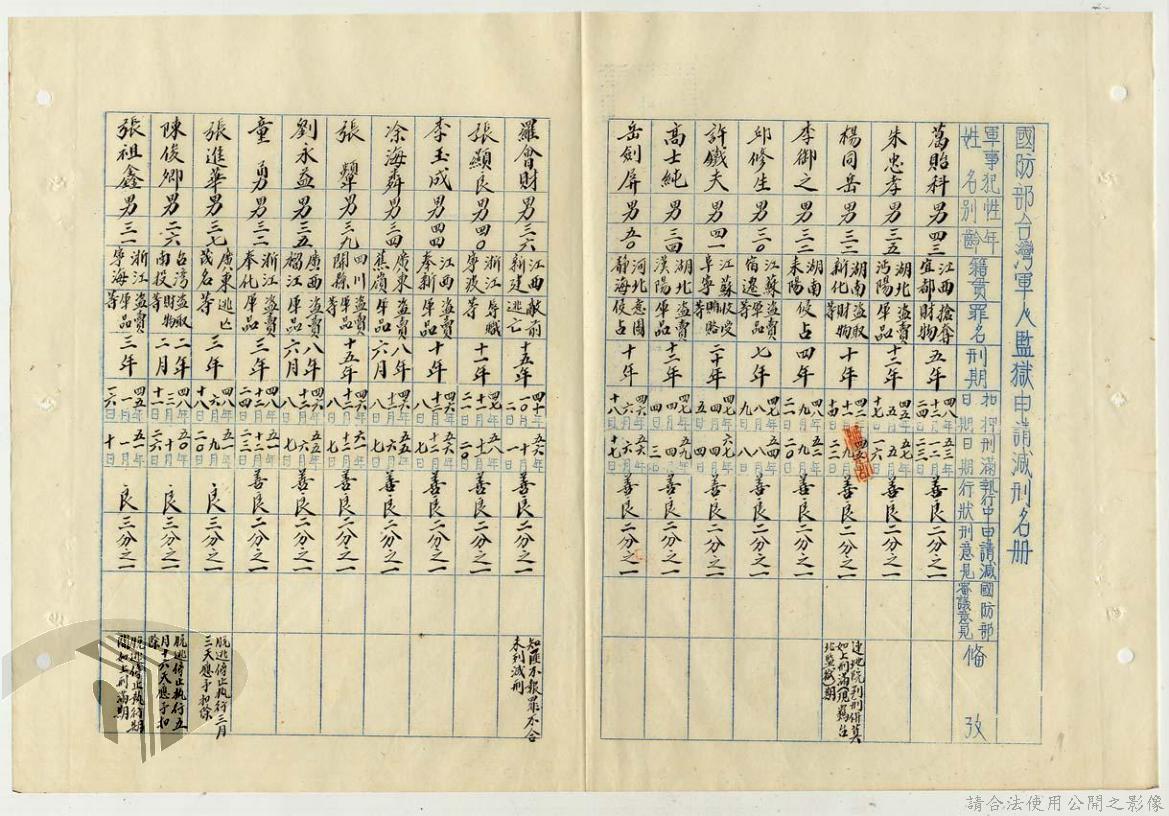 國防部台灣軍人監獄申請減刑名册
軍事犯姓名 性別 年齡 籍貫 罪名 刑期 扣押日期 刑滿日期 執行中行狀 申請減刑意見 國防部審議意見 備攷
萬貽科 男 四三 江西宜都 搶奪財物 五年 善良 二分之一
朱忠孝 男 三五 湖北沔陽 盜賣軍品 十二年 善良 二分之一
楊同岳 男 三二 湖南新化 盜取財物等 十年 善良 二分之一
李御之 男 三二 湖南耒陽 侵占 四年 四八年九月二一日 五二年九月二〇日 善良 二分之一
邱修生 男 三〇 江蘇宿遷 盜賣軍品等 七年 四七年八月九日 五四年八月八日 善良 二分之一
許鐵夫 男 四一 江蘇阜寧 收受賄賂 二十年 四七年四月五日 六七年四月四日 善良 二分之一
高士純 男 三四 湖北漢陽 盜賣軍品 十二年 四七年四月四日 五九年四月三日 善良 二分之一
岳劍屏 男 五〇 河北靜海 意圖侵占 十年 四六年六月十八日 五六年六月十七日 善良 二分之一
羅會財 男 三六 江西新建 敵前逃亡 十五年 善良 二分之一 知匪不報罪不合未列減刑
張顯良 男 四〇 浙江寧波 辱職等 十一年 善良 二分之一
李玉成 男 四四 江西奉新 盜賣軍品 十年 善良 二分之一
涂海舜 男 三四 廣東蕉嶺 盜賣軍品 八年六月 善良 二分之一
張顰 男 三九 四川開縣 盜賣軍品 十五年 善良 二分之一
劉永益 男 三五 廣西榴江 盜賣軍品 八年六月 善良 二分之一
童勇 男 三二 浙江奉化 盜賣軍品 三年 善良 二分之一
張進華 男 三七 廣東茂名 逃亡等 三年 四八年六月十八日 五一年九月二〇日 良 三分之一 脫逃停止執行三月三天應予扣除
陳俊卿 男 二六 台灣南投 盜取財物等 二年二月 良 三分之一 脫逃停止執行五月十六天應予扣除
張祖鑫 男 三一 浙江寧海 盜賣軍品等 三年 四五年一月十六日 五一年一月十六日 良 三分之一 脫逃停止執行期間如上刑滿期
請合法使用公開之影像